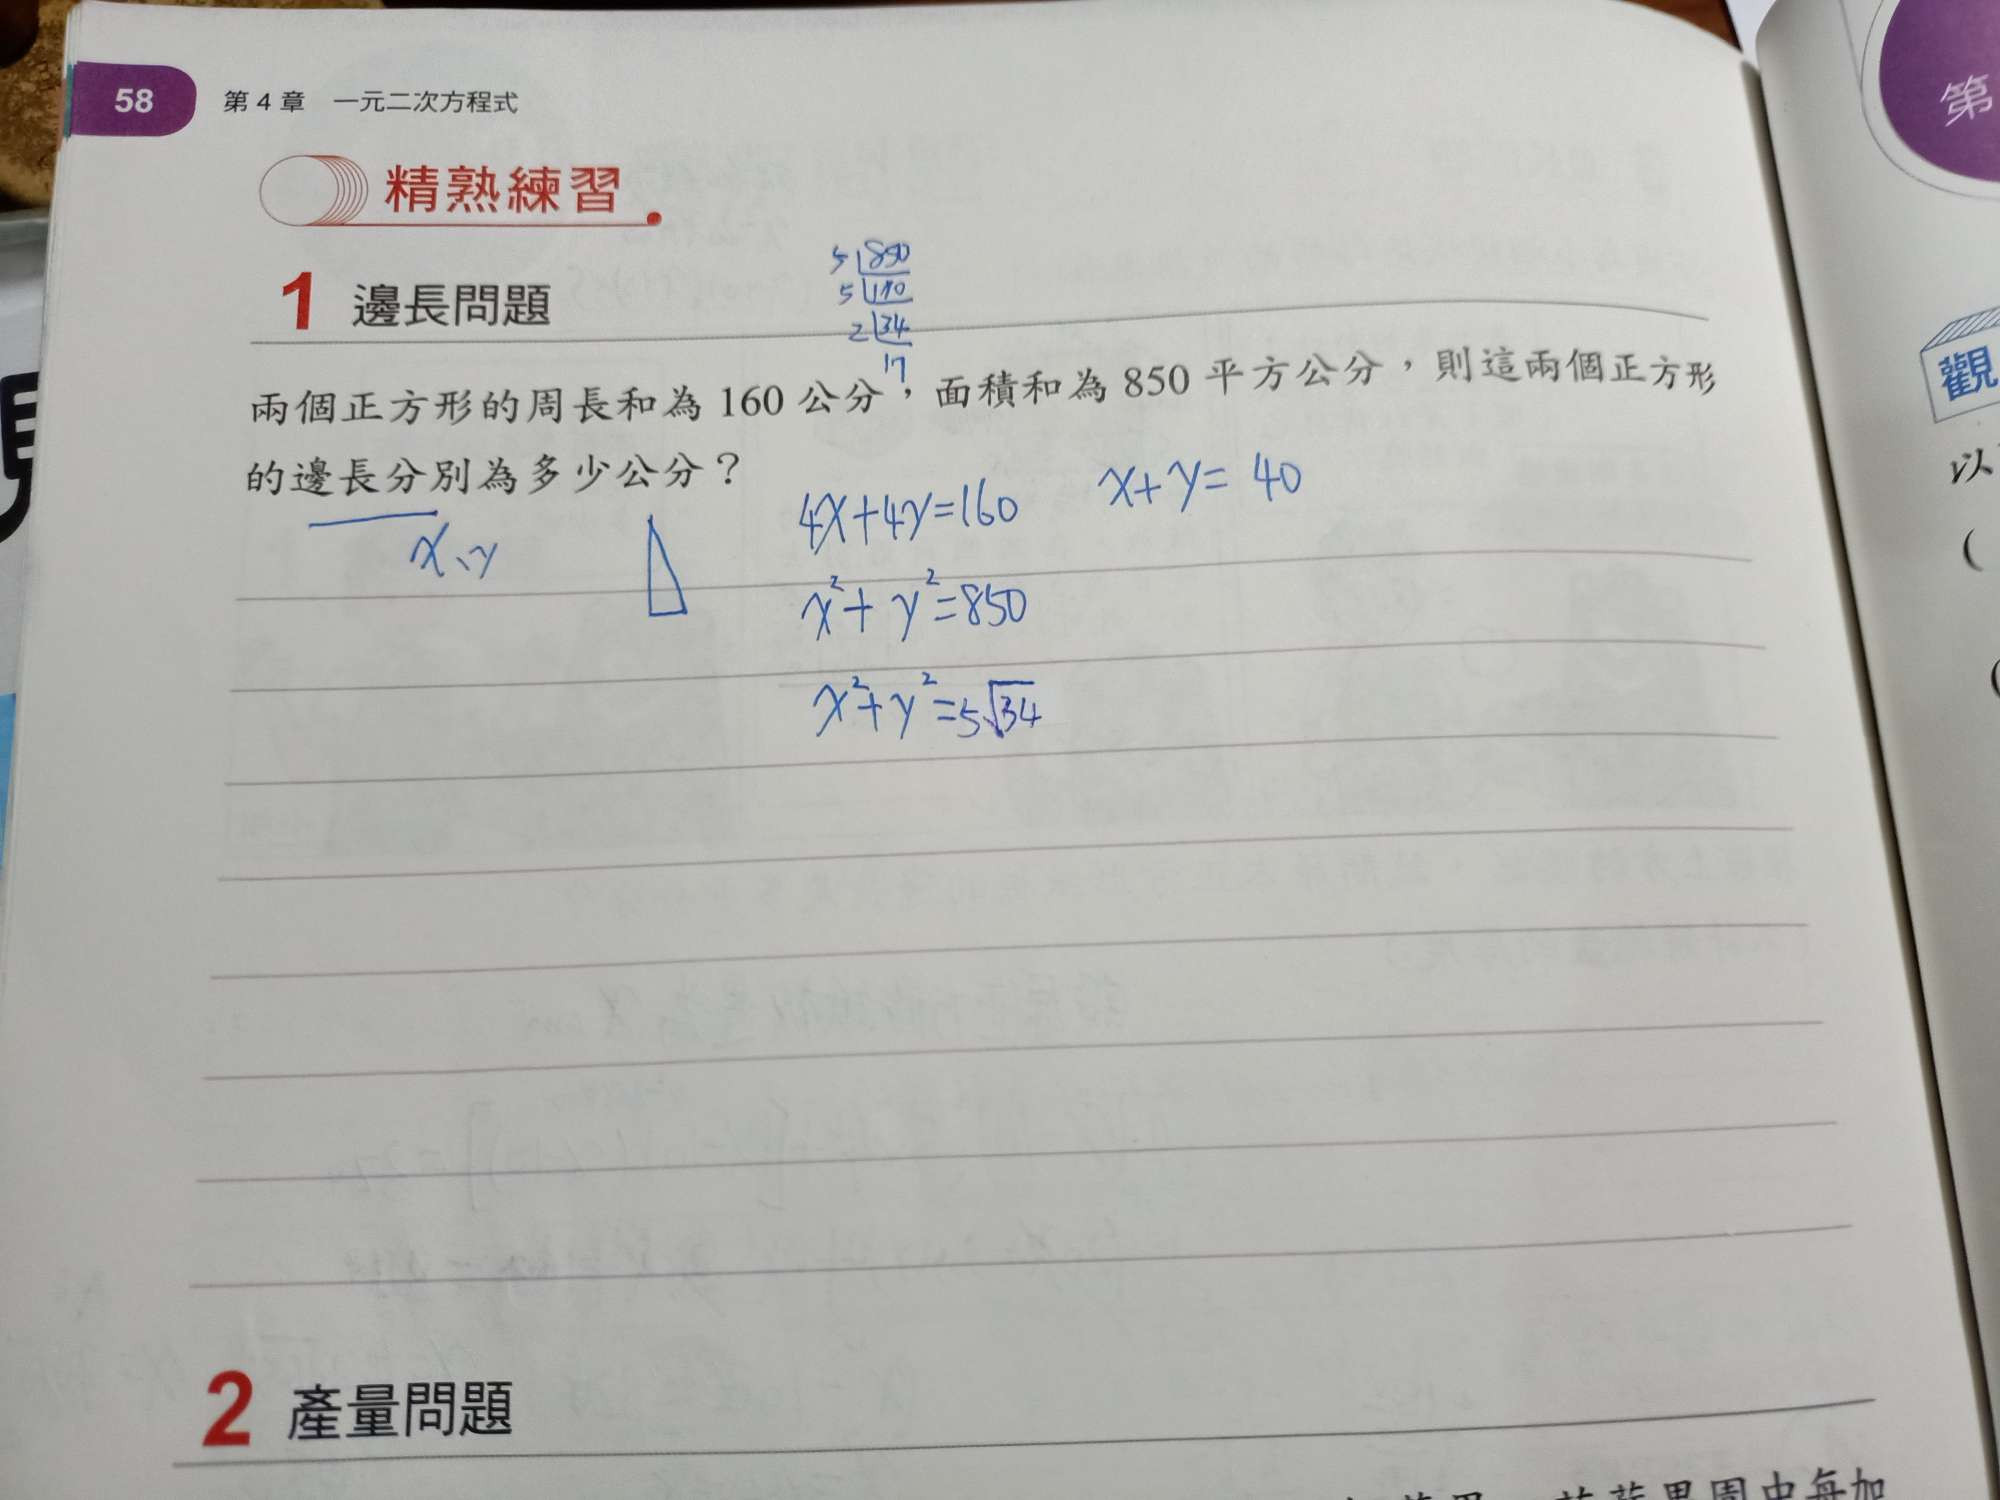 58 第 4 章 一元二次方程式
第
精熟練習
1 邊長問題
5 850
5 170
2 34
17
兩個正方形的周長和為 160 公分，面積和為 850 平方公分，則這兩個正方形
的邊長分別為多少公分？
x、y
4x+4y=160
x+y=40
x²+y²=850
x²+y²=5√34
2 產量問題
觀
以
(
(